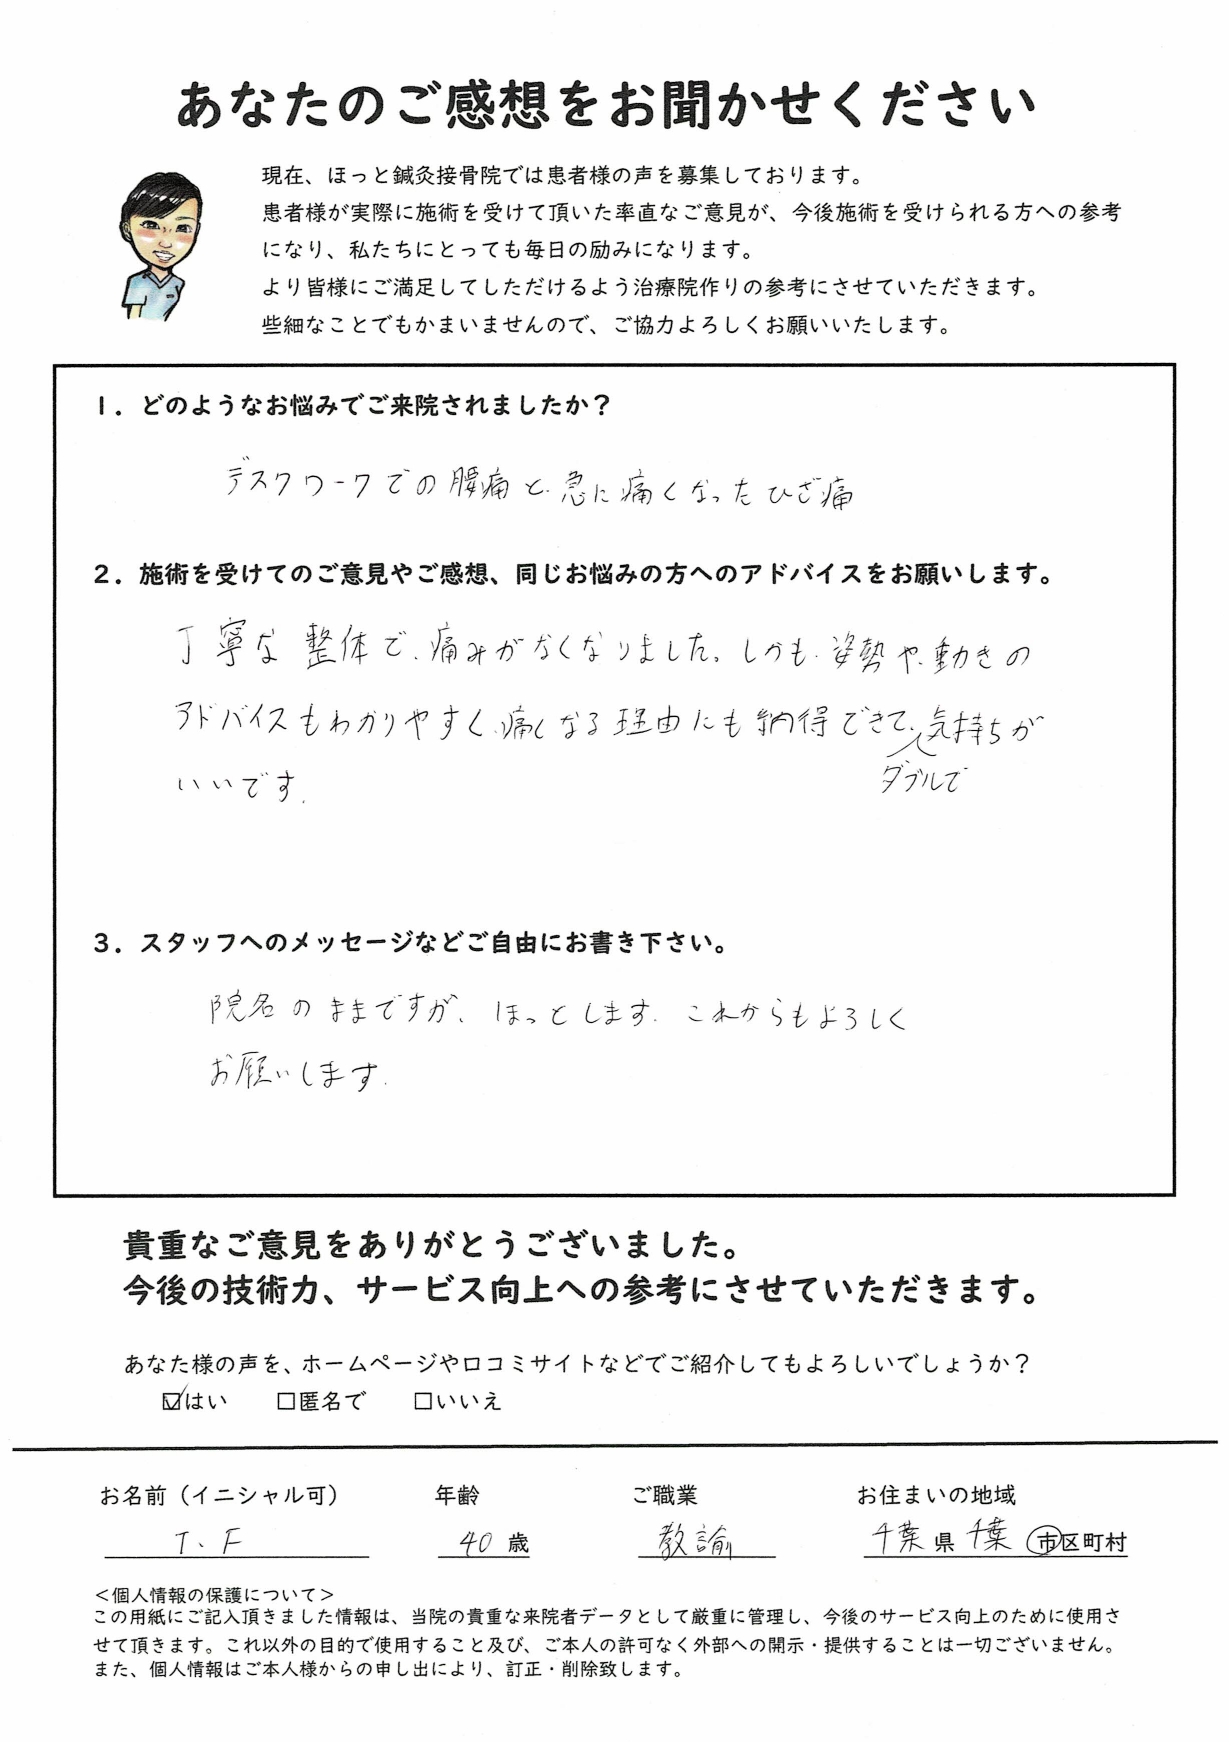 あなたのご感想をお聞かせください
現在、ほっと鍼灸接骨院では患者様の声を募集しております。
患者様が実際に施術を受けて頂いた率直なご意見が、今後施術を受けられる方への参考
になり、私たちにとっても毎日の励みになります。
より皆様にご満足してしただけるよう治療院作りの参考にさせていただきます。
些細なことでもかまいませんので、ご協力よろしくお願いいたします。
1. どのようなお悩みでご来院されましたか？
デスクワークでの腰痛と、急に痛くなったひざ痛
2. 施術を受けてのご意見やご感想、同じお悩みの方へのアドバイスをお願いします。
丁寧な整体で、痛みがなくなりました。しかも、姿勢や、動きの
アドバイスもわかりやすく、痛くなる理由にも納得できて、気持ちが
ダブルで
いいです。
3. スタッフへのメッセージなどご自由にお書き下さい。
院名のままですが、ほっとします。これからもよろしく
お願いします。
貴重なご意見をありがとうございました。
今後の技術力、サービス向上への参考にさせていただきます。
あなた様の声を、ホームページや口コミサイトなどでご紹介してもよろしいでしょうか？
☑はい □匿名で □いいえ
お名前（イニシャル可） 年齢 ご職業 お住まいの地域
T、F 40 歳 教諭 千葉 県 千葉 市区町村
＜個人情報の保護について＞
この用紙にご記入頂きました情報は、当院の貴重な来院者データとして厳重に管理し、今後のサービス向上のために使用さ
せて頂きます。これ以外の目的で使用すること及び、ご本人の許可なく外部への開示・提供することは一切ございません。
また、個人情報はご本人様からの申し出により、訂正・削除致します。